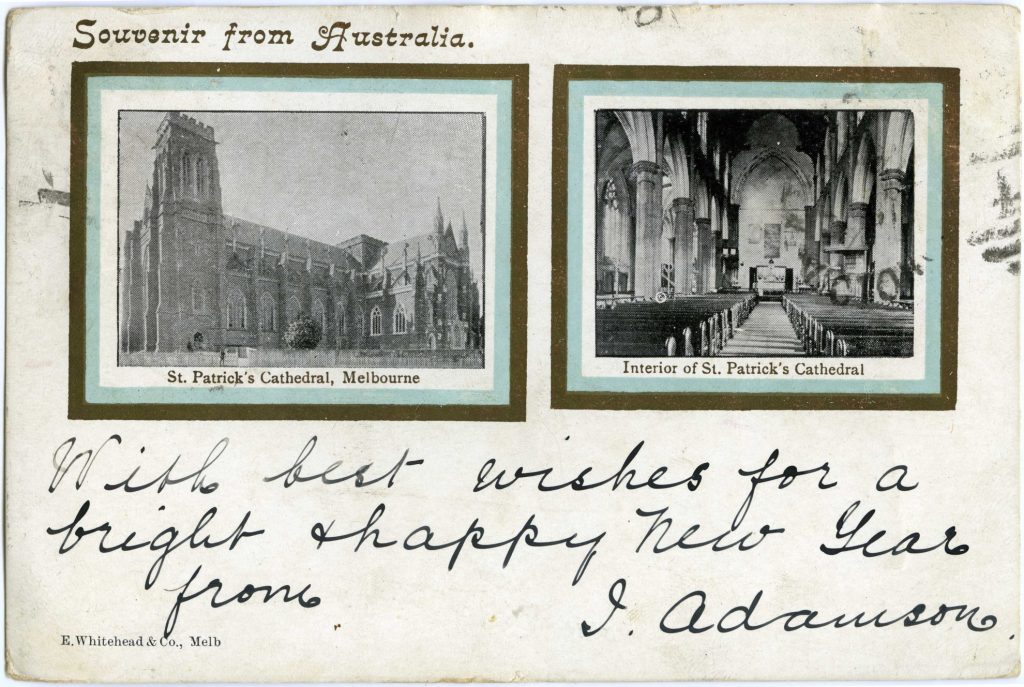 Souvenir from Australia.
St. Patrick's Cathedral, Melbourne
Interior of St. Patrick's Cathedral
With best wishes for a
bright & happy New Year
from J. Adamson.
E. Whitehead & Co., Melb